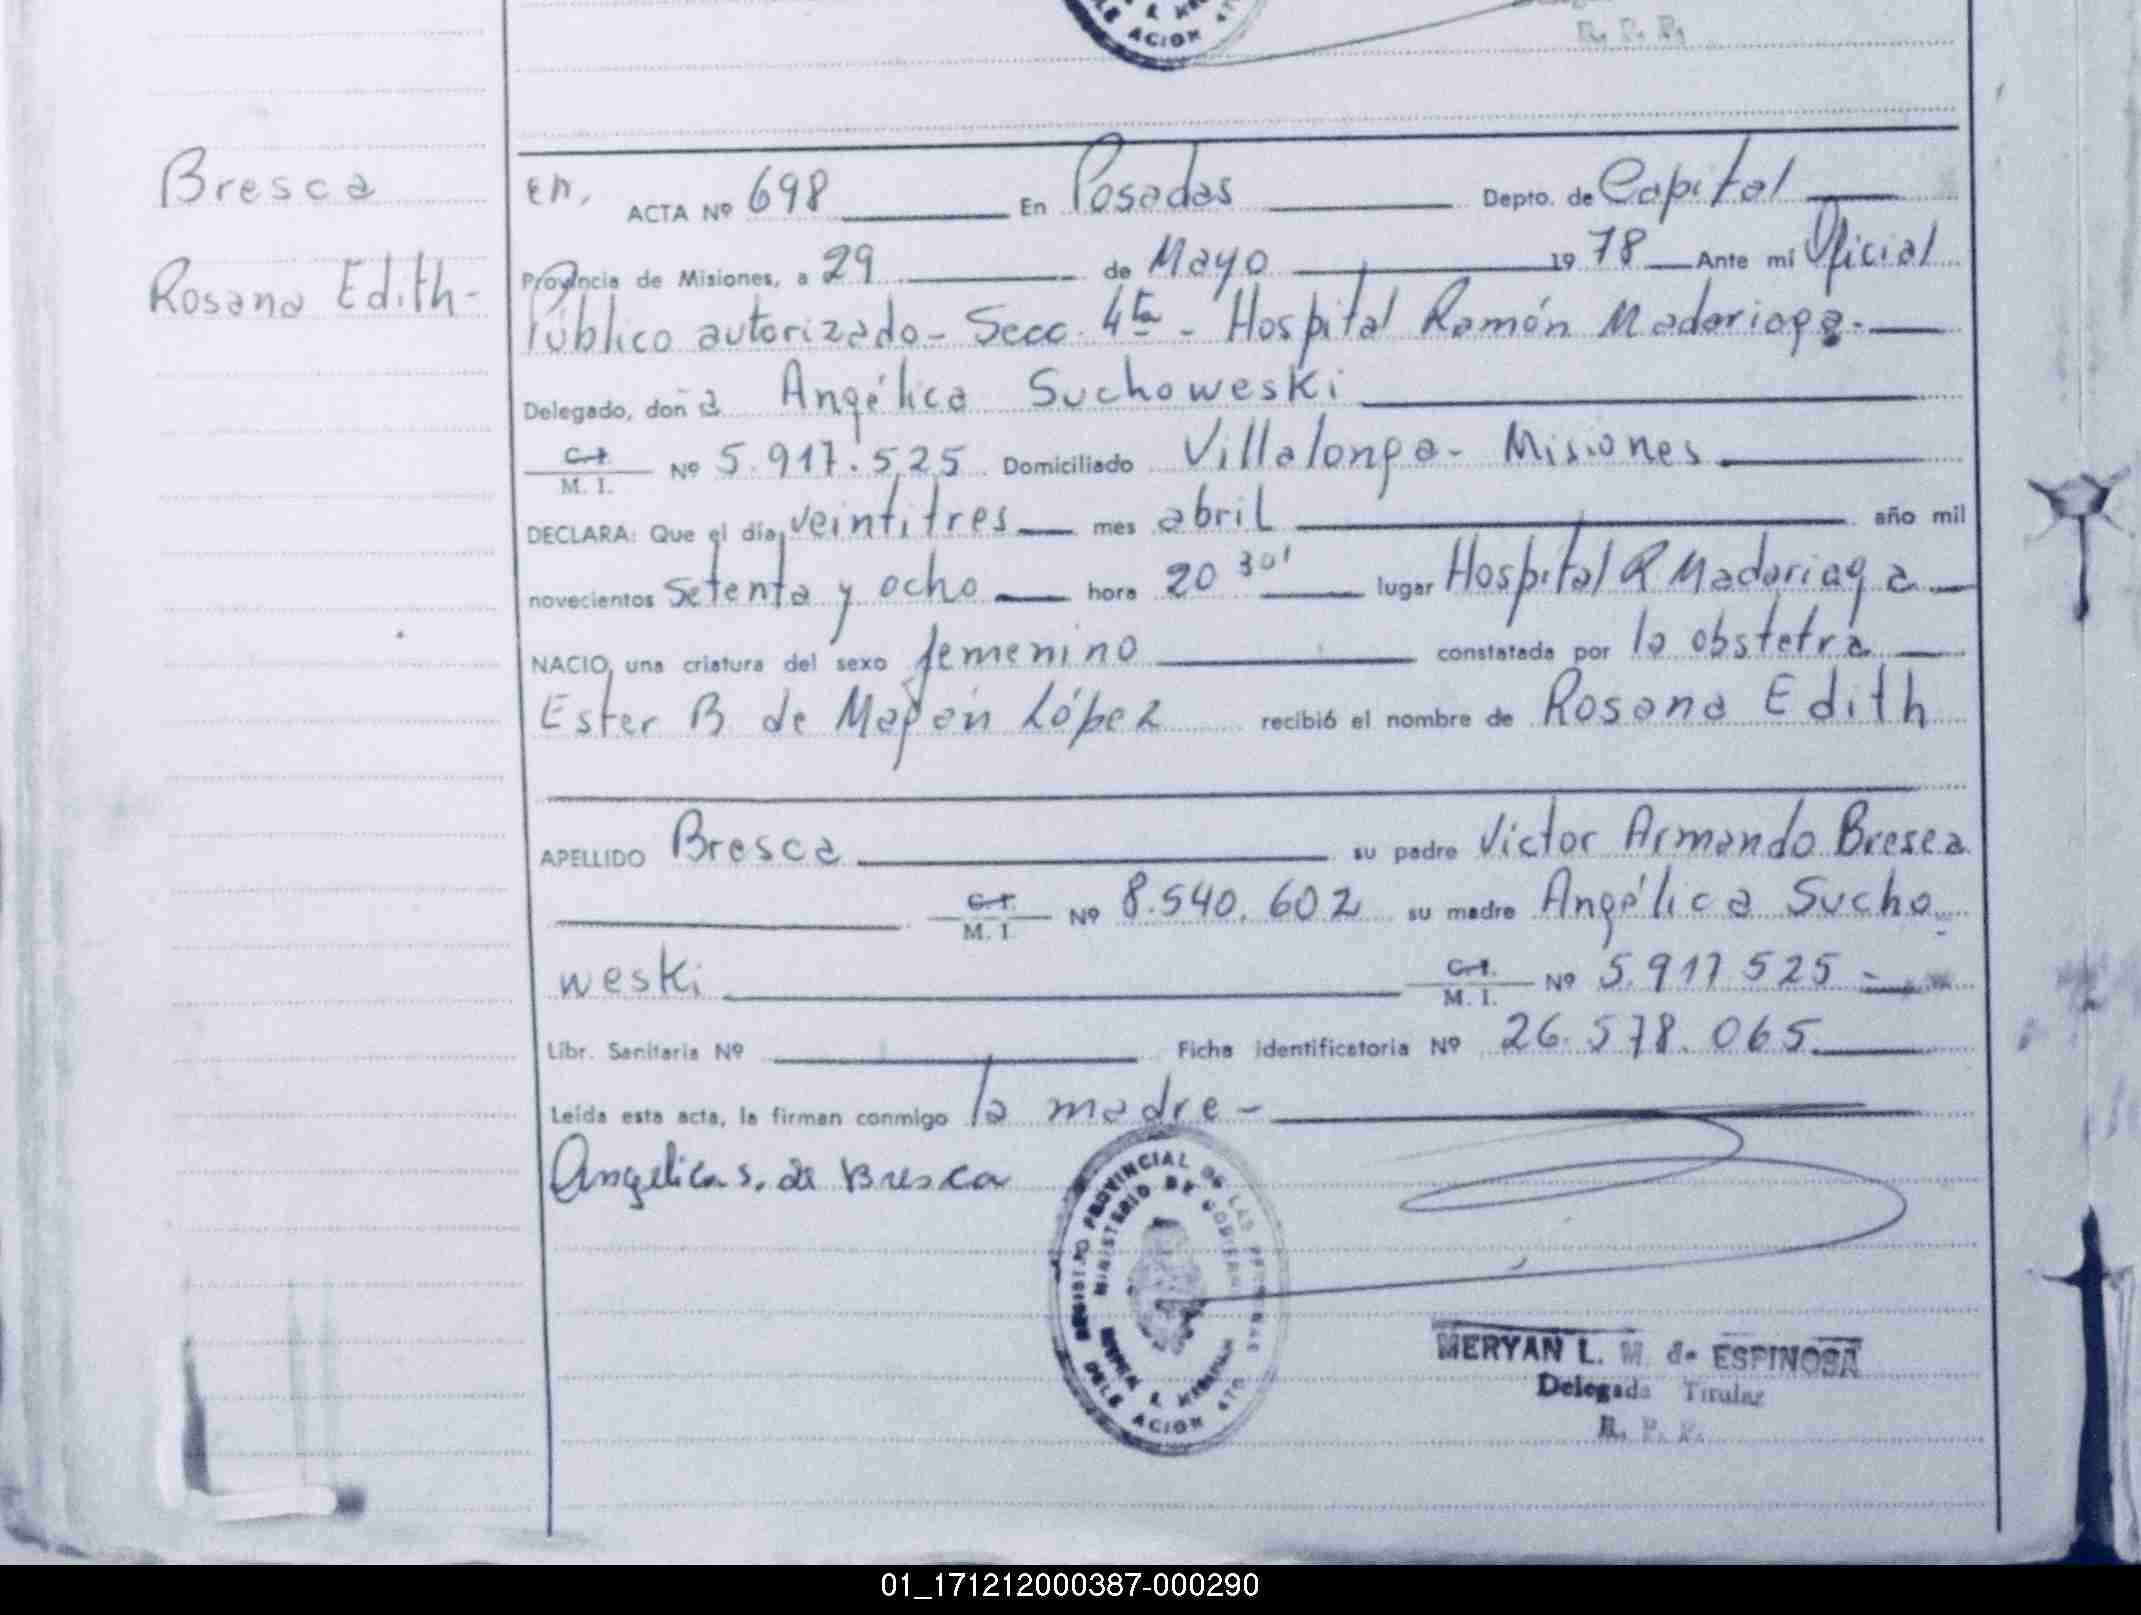 ACION
R. P. P.
Bresca
Rosana Edith-
en, ACTA Nº 698 En Posadas Depto. de Capital
Provincia de Misiones, a 29 de Mayo 1978 Ante mi Oficial
Público autorizado- Secc. 4ta - Hospital Ramón Madariaga-
Delegado, doña Angélica Suchoweski
C.I.
M. I. Nº 5.917.525 Domiciliado Villalonga- Misiones
DECLARA: Que el día, veintitres mes abril año mil
novecientos setenta y ocho hora 20 30' lugar Hospital R Madariaga
NACIO, una criatura del sexo femenino constatada por la obstetra
Ester B de López recibió el nombre de Rosana Edith
APELLIDO Bresca su padre Victor Armando Bresca
C.I.
M. I. Nº 8.540.602 su madre Angélica Sucho
weski C.I.
M. I. Nº 5.917 525
Libr. Sanitaria Nº Ficha identificatoria Nº 26.578.065
Leída esta acta, la firman conmigo la madre-
Angelica s. de Bresca
REGISTRO PROVINCIAL DE LAS PERSONAS
MINISTERIO DE GOBIERNO
DELEGACION 4TO
MERYAN L. M. de ESPINOSA
Delegada Titular
R. P. P.
01_171212000387-000290